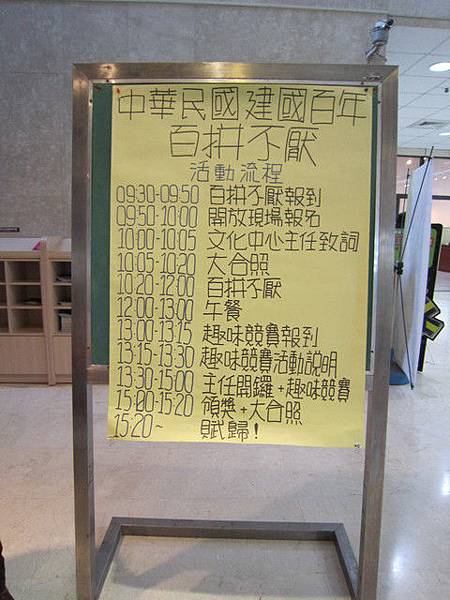 中華民國建國百年
百拼不厭
活動流程
09:30-09:50 百拼不厭報到
09:50-10:00 開放現場報名
10:00-10:05 文化中心主任致詞
10:05-10:20 大合照
10:20-12:00 百拼不厭
12:00-13:00 午餐
13:00-13:15 趣味競賽報到
13:15-13:30 趣味競賽活動說明
13:30-15:00 主任開鑼+趣味競賽
15:00-15:20 領獎+大合照
15:20~ 賦歸!